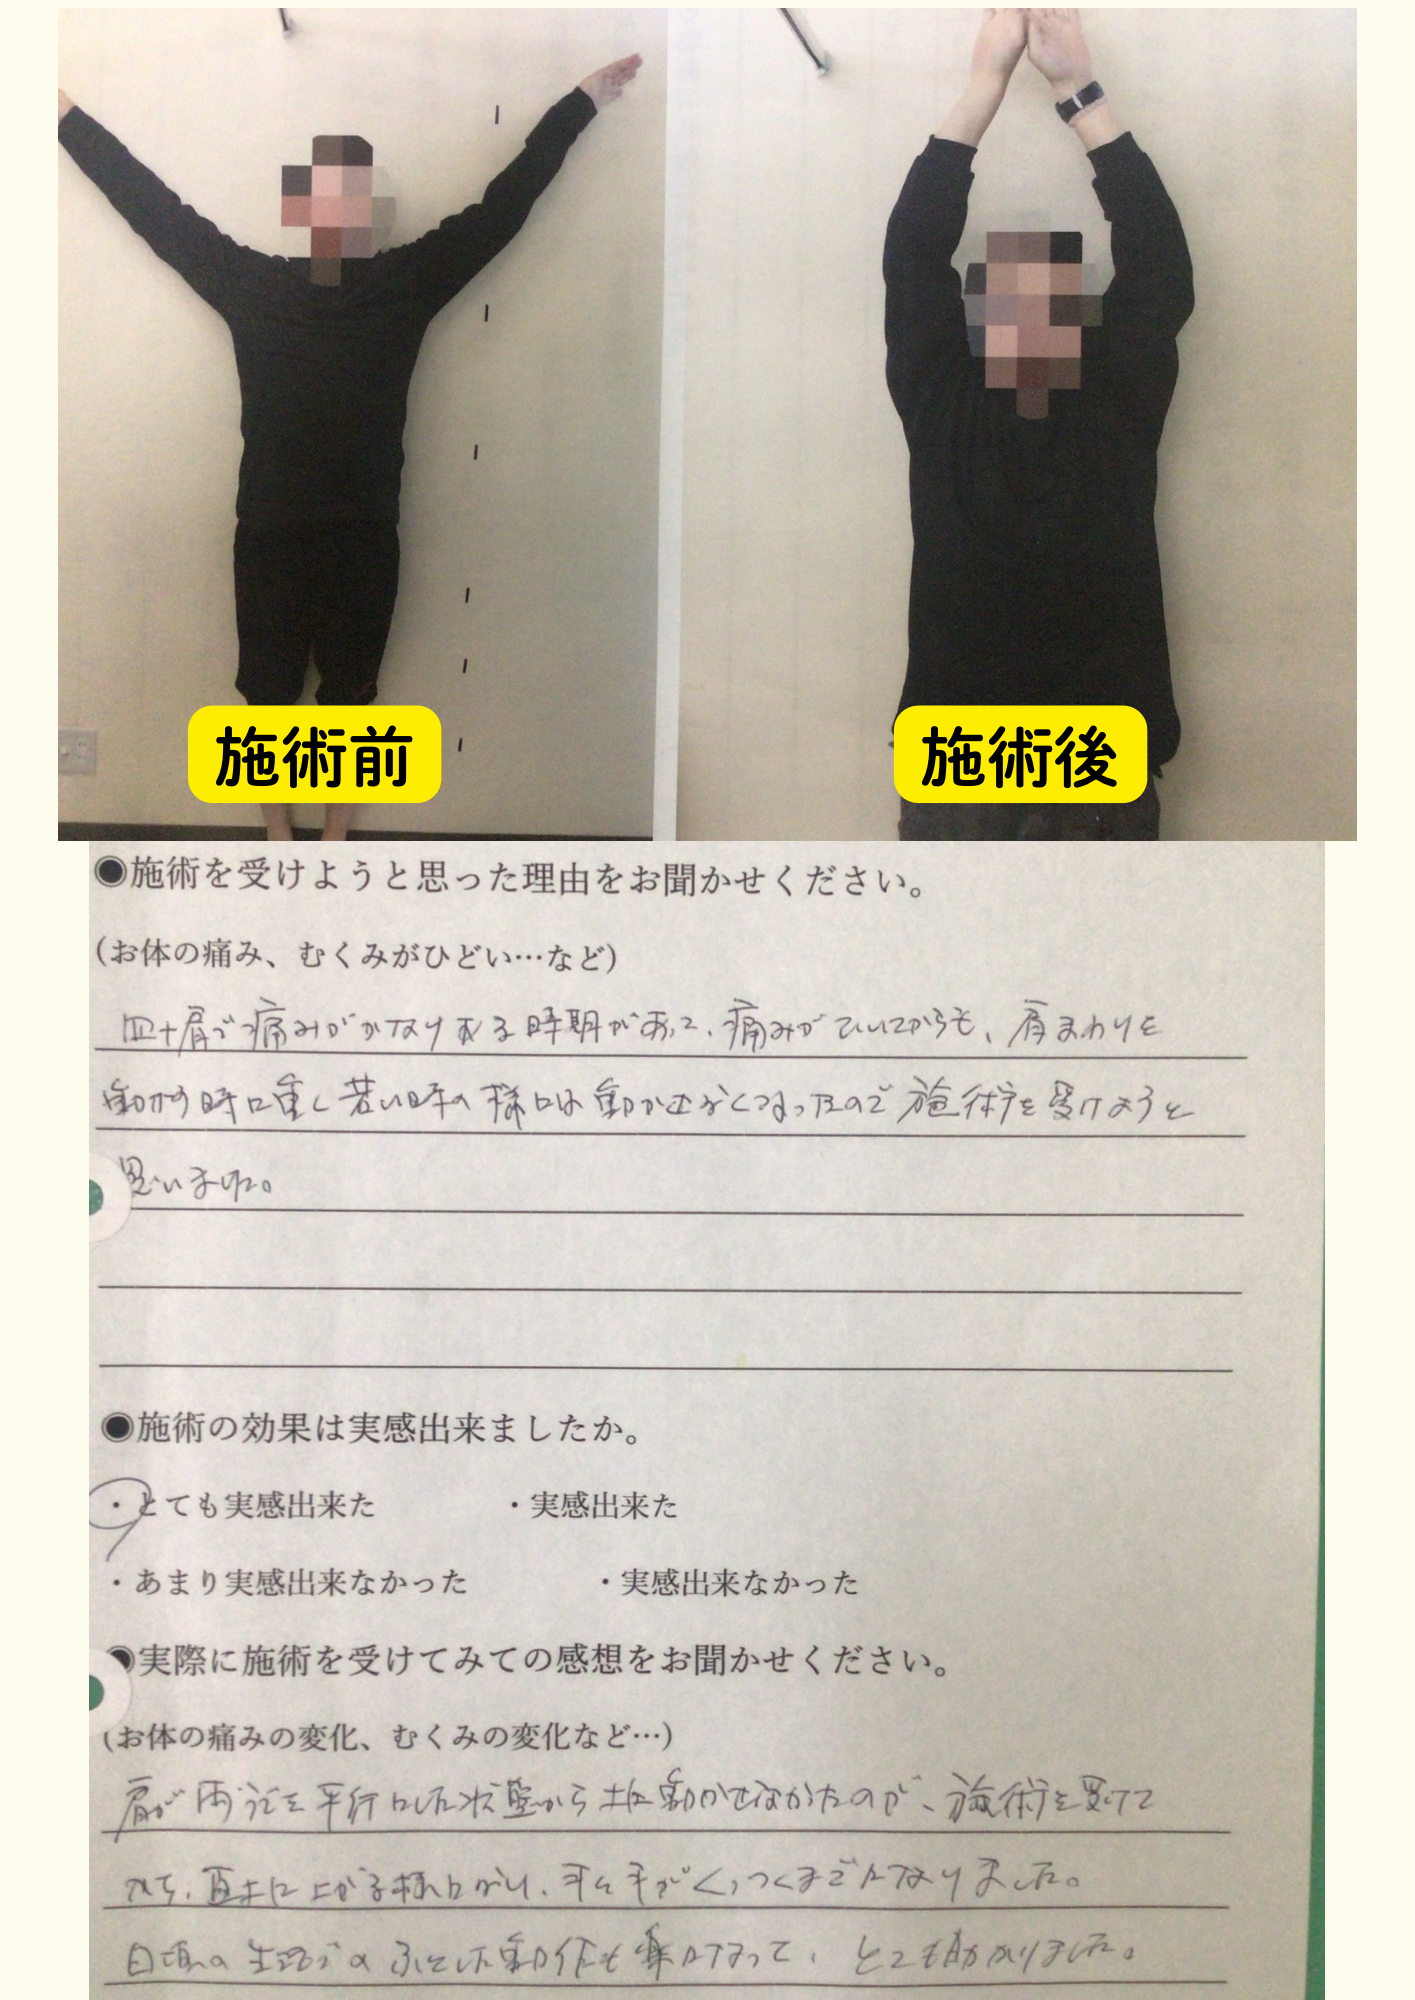 施術前
施術後
●施術を受けようと思った理由をお聞かせください。
(お体の痛み、むくみがひどい…など)
四十肩で痛みがかなりある時期があって、痛みがひいてからも、肩まわりを
動かす時に重く若い時の様には動かせなくなったので施術を受けようと
思いました。
●施術の効果は実感出来ましたか。
・とても実感出来た
・実感出来た
・あまり実感出来なかった
・実感出来なかった
●実際に施術を受けてみての感想をお聞かせください。
(お体の痛みの変化、むくみの変化など…)
肩が両うでを平行にした状態から上に動かせなかったのが、施術を受けて
から、真上に上がる様になり、手と手がくっつくまでになりました。
日頃の生活でのふとした動作も楽になって、とても助かりました。